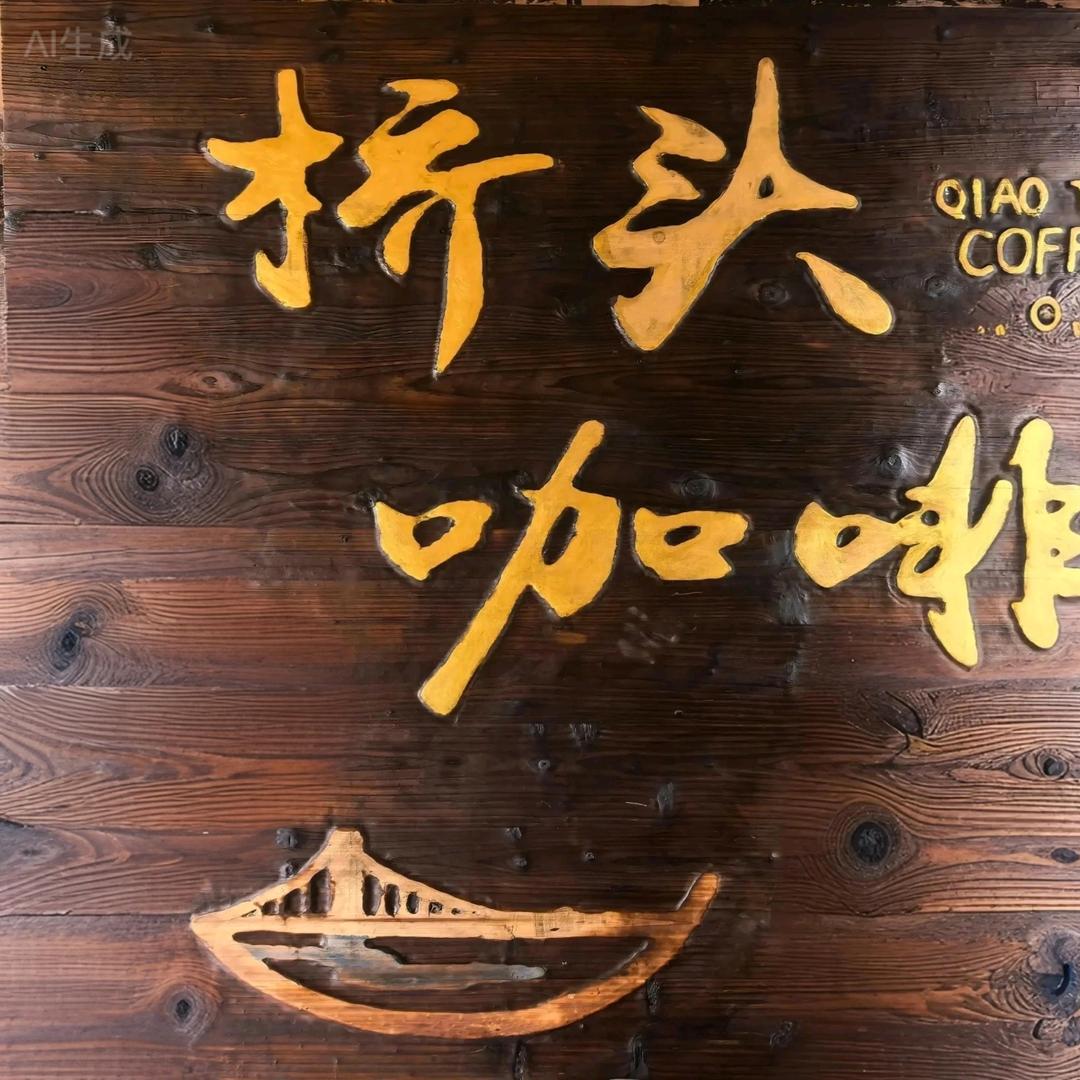 AI生成
桥头
QIAO T
COFF
咖啡